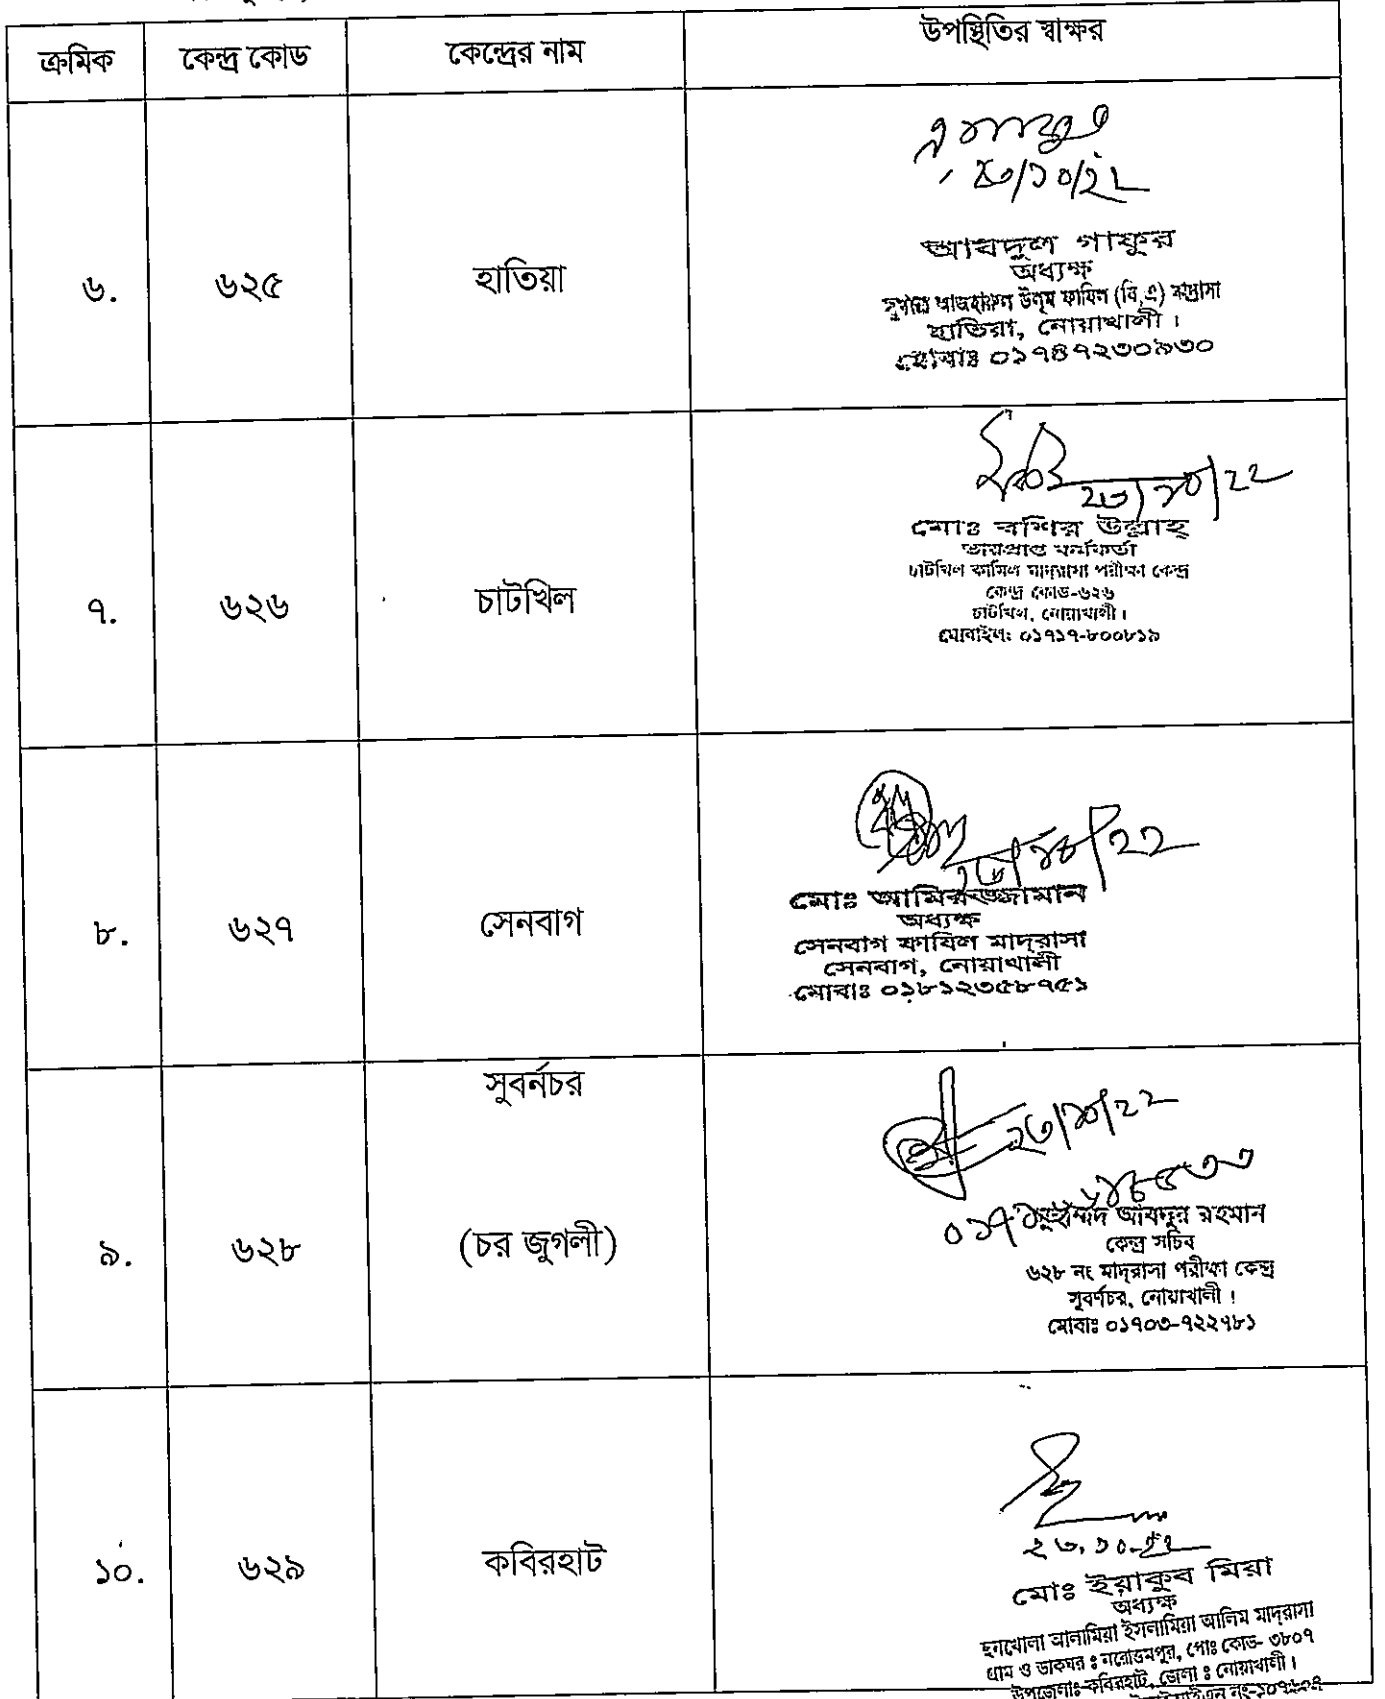 ক্রমিক কেন্দ্র কোড কেন্দ্রের নাম উপস্থিতির স্বাক্ষর
৬. ৬২৫ হাতিয়া
আবদুল গাফুর
অধ্যক্ষ
ফাযিল (বি,এ) মাদ্রাসা
হাতিয়া, নোয়াখালী।
মোবাঃ ০১৭৪৭২৩০৯৩০
৭. ৬২৬ চাটখিল
২৩/১০/২২
মোঃ বশির উল্লাহ্
ভারপ্রাপ্ত কর্মকর্তা
চাটখিল কামিল মাদ্রাসা পরীক্ষা কেন্দ্র
কেন্দ্র কোড-৬২৬
চাটখিল, নোয়াখালী।
মোবাইল: ০১৭১৭-৮০০৮১৯
৮. ৬২৭ সেনবাগ
২৩/১০/২২
মোঃ আমিরুজ্জামান
অধ্যক্ষ
সেনবাগ ফাযিল মাদ্‌রাসা
সেনবাগ, নোয়াখালী
মোবাঃ ০১৮১২৩৫৮৭৫১
৯. ৬২৮ সুবর্নচর
(চর জুগলী)
২৩/১০/২২
মুহাম্মদ আবদুর রহমান
কেন্দ্র সচিব
৬২৮ নং মাদ্‌রাসা পরীক্ষা কেন্দ্র
সুবর্ণচর, নোয়াখালী।
মোবাঃ ০১৭০৩-৭২২৭৮১
১০. ৬২৯ কবিরহাট
২৩.১০.২২
মোঃ ইয়াকুব মিয়া
অধ্যক্ষ
ইসলামিয়া আলিম মাদ্‌রাসা
গ্রাম ও ডাকঘর : নরোত্তমপুর, পোঃ কোড- ৩৮০৭
উপজেলাঃ কবিরহাট, জেলা : নোয়াখালী।